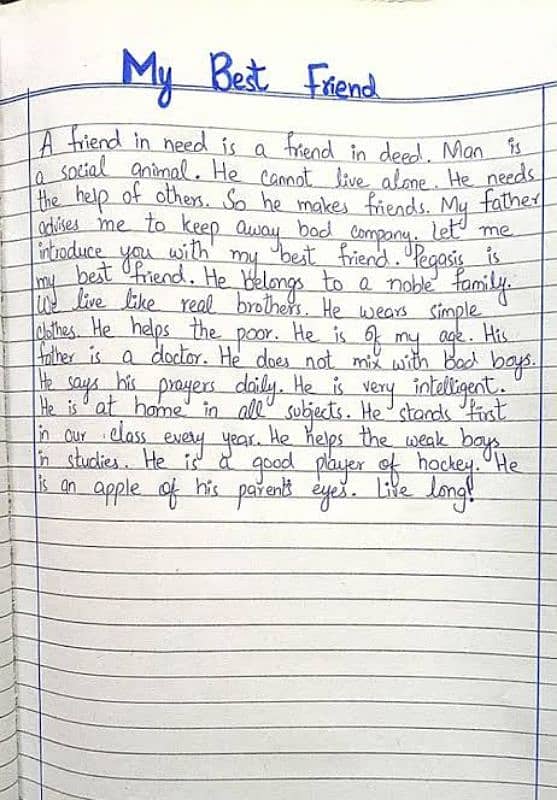 My Best Friend
A friend in need is a friend in deed. Man is
a social animal. He cannot live alone. He needs
the help of others. So he makes friends. My father
advises me to keep away bad company. Let me
introduce you with my best friend. Pegasis is
my best friend. He belongs to a noble family.
We live like real brothers. He wears simple
clothes. He helps the poor. He is of my age. His
father is a doctor. He does not mix with bad boys.
He says his prayers daily. He is very intelligent.
He is at home in all subjects. He stands first
in our class every year. He helps the weak boys
in studies. He is a good player of hockey. He
is an apple of his parents eyes. Live long!